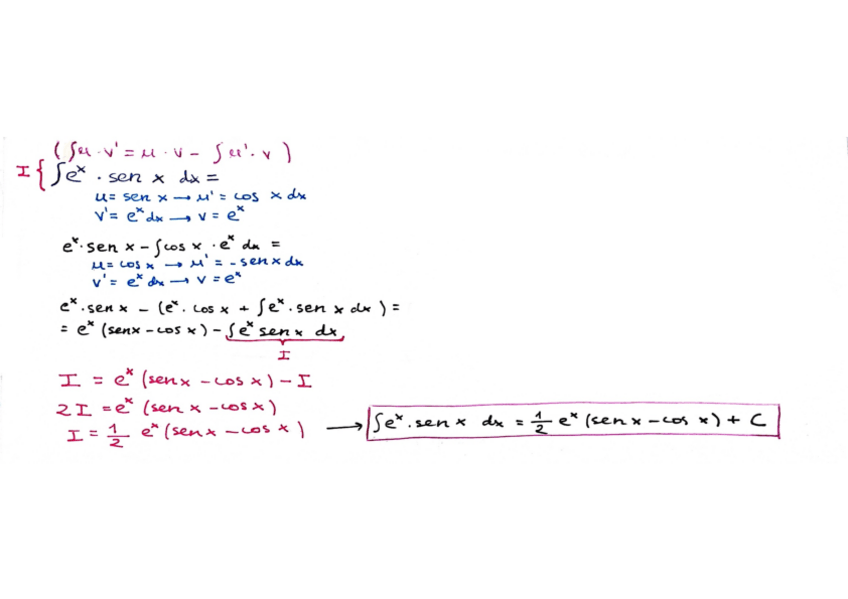 (∫u · v' = u · v - ∫u' · v)
I { ∫eˣ · sen x dx =
u = sen x → u' = cos x dx
v' = eˣ dx → v = eˣ
eˣ · sen x - ∫cos x · eˣ dx =
u = cos x → u' = - sen x dx
v' = eˣ dx → v = eˣ
eˣ · sen x - (eˣ · cos x + ∫eˣ · sen x dx) =
= eˣ (sen x - cos x) - ∫eˣ sen x dx
I
I = eˣ (sen x - cos x) - I
2I = eˣ (sen x - cos x)
I = 1/2 eˣ (sen x - cos x) → ∫eˣ · sen x dx = 1/2 eˣ (sen x - cos x) + C